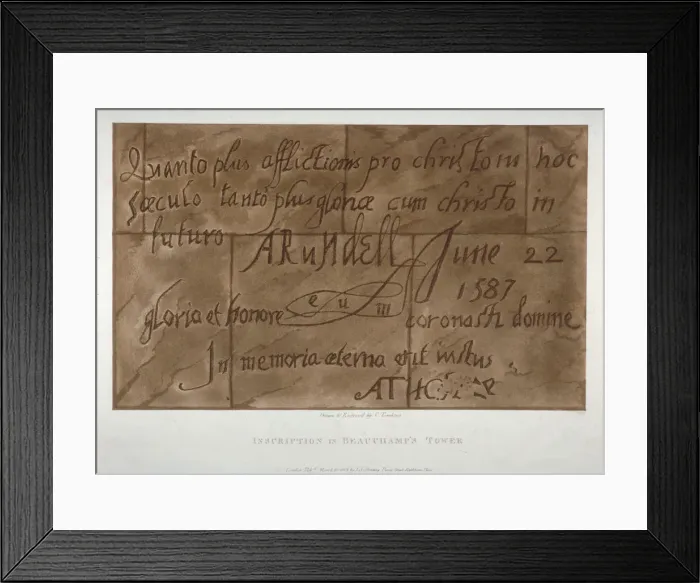 Quanto plus afflictionis pro christo in hoc
sæculo tanto plus gloriæ cum christo in
futuro
ARundell June 22
1587
gloria et honore eum coronasti domine
In memoria æterna erit iustus
Drawn & Engraved by C. Tomkins
INSCRIPTION IN BEAUCHAMP'S TOWER